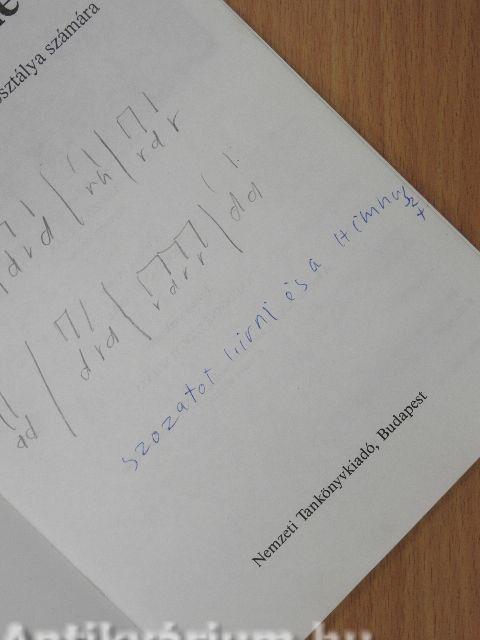 osztálya számára
drd | rh | rdr
dd | drd | rdrr | dd
szozatot liirni és a Himnuszt
Nemzeti Tankönyvkiadó, Budapest
Antikvárium.hu